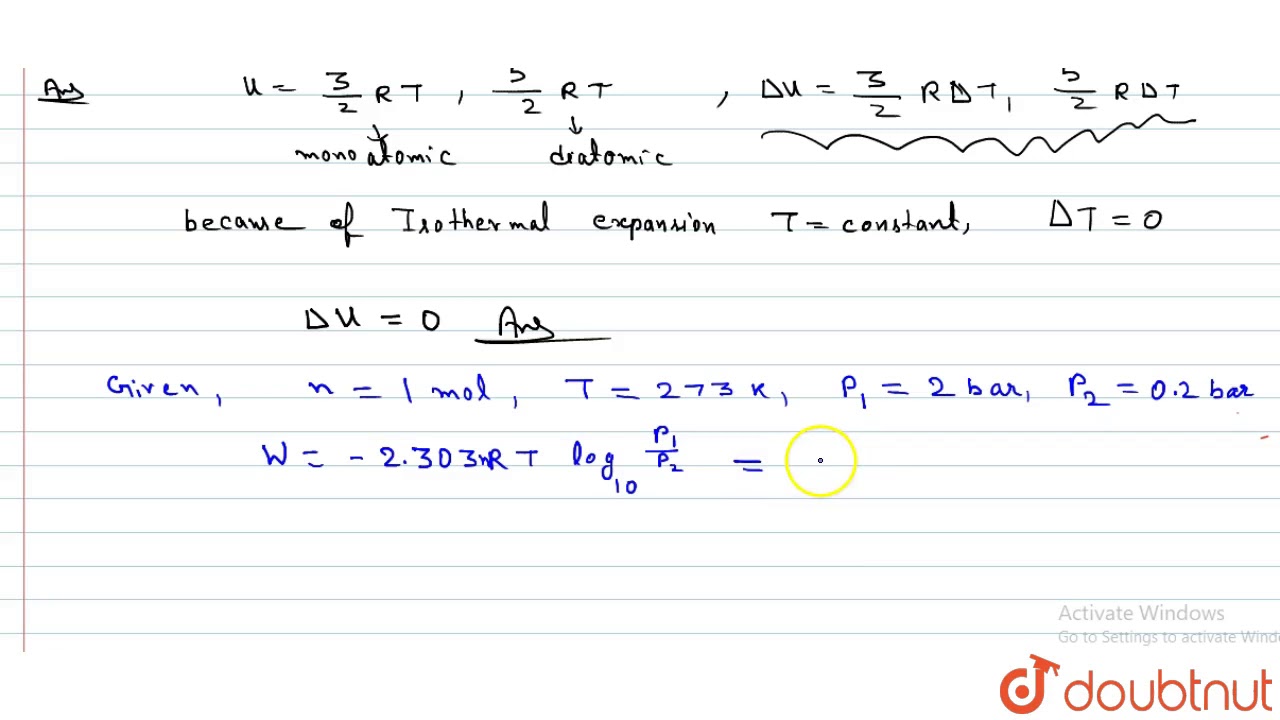 Ans U = 3/2 RT , 5/2 RT , ΔU = 3/2 RΔT, 5/2 RΔT
monoatomic diatomic
because of Isothermal expansion T = constant, ΔT = 0
ΔU = 0 Ans
Given, n = 1 mol, T = 273 K, P1 = 2 bar, P2 = 0.2 bar
W = - 2.303nRT log10 P1/P2 =
Activate Windows
Go to Settings to activate Wind
doubtnut